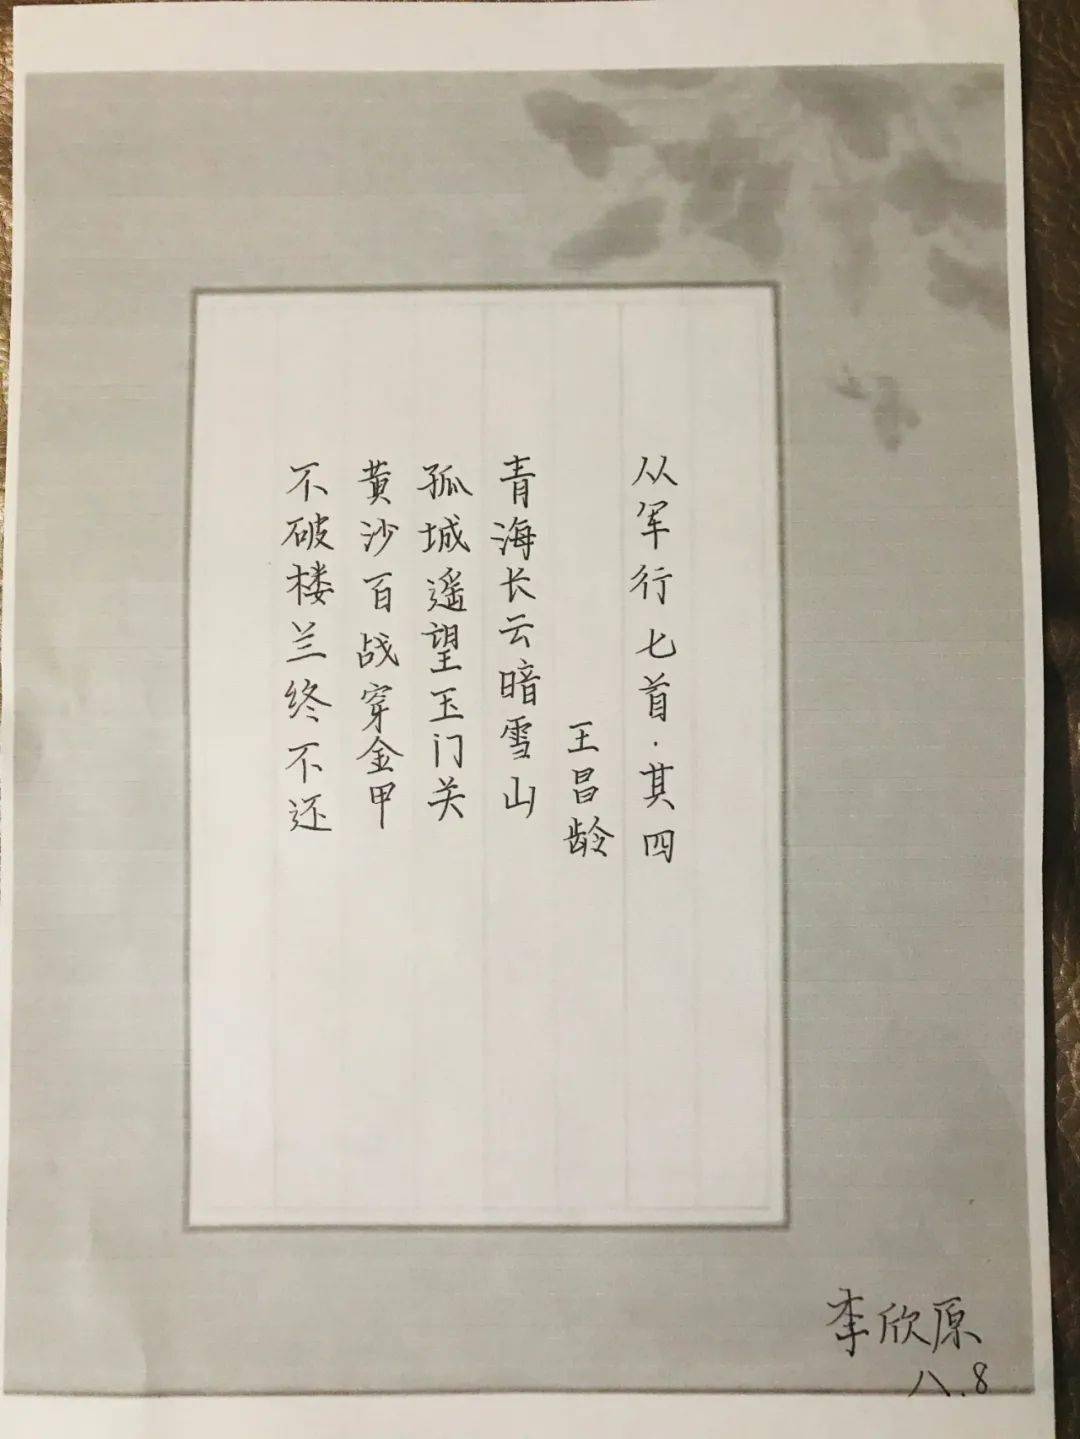 从军行七首·其四
王昌龄
青海长云暗雪山
孤城遥望玉门关
黄沙百战穿金甲
不破楼兰终不还
李欣原
八.8